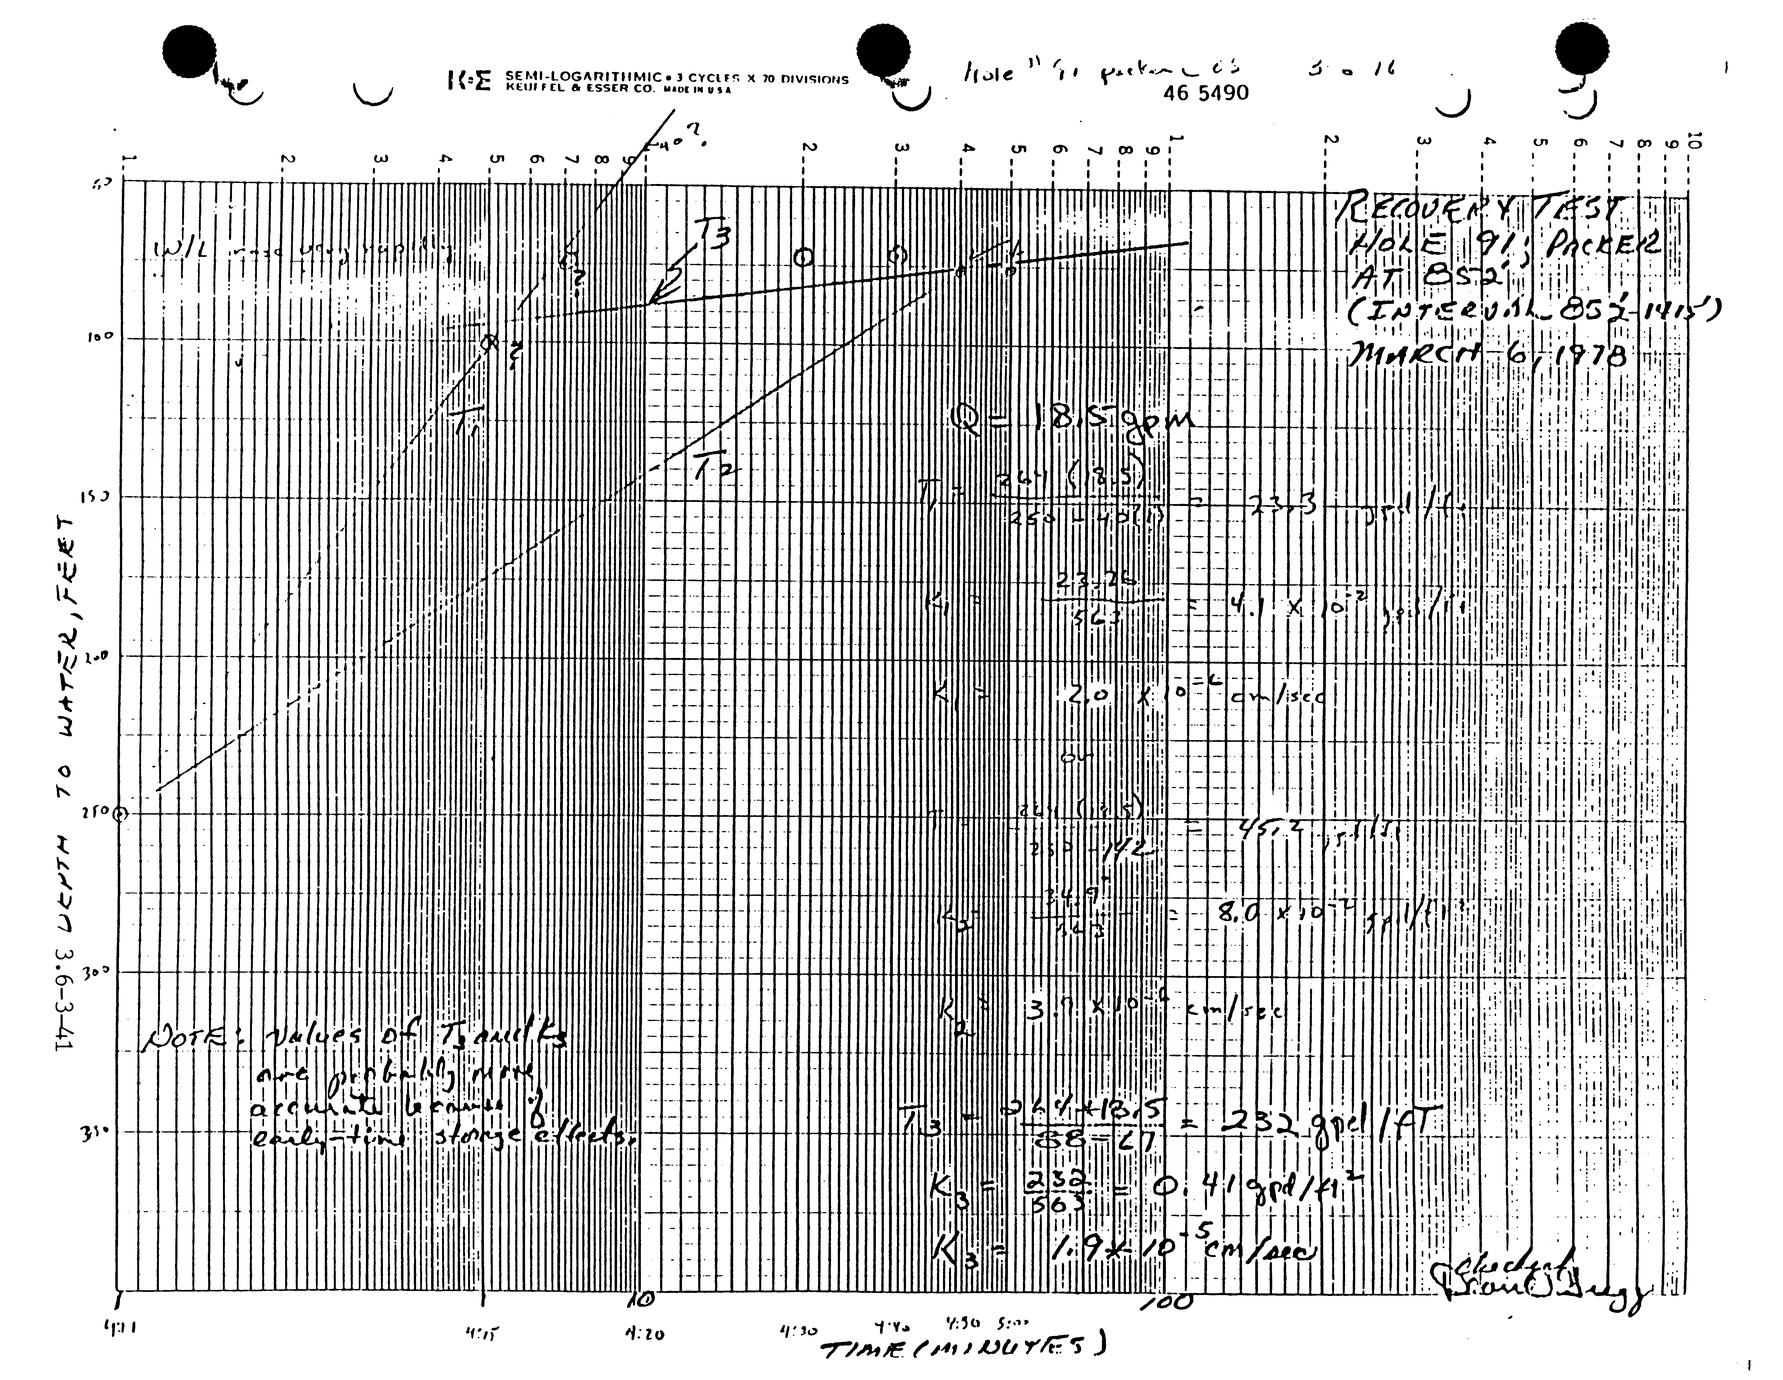 K+E SEMI-LOGARITHMIC • 3 CYCLES X 70 DIVISIONS
KEUFFEL & ESSER CO. MADE IN U S A
46 5490
Hole
1 2 3 4 5 6 7 8 9 1 2 3 4 5 6 7 8 9 1 2 3 4 5 6 7 8 9 10
RECOVERY TEST
HOLE 91; PACKER
AT 852'
(INTERVAL 852'-1415')
MARCH 6, 1978
W/L rose very rapidly
T3
T1
T2
50
100
150
200
250
300
DEPTH TO WATER, FEET
3.6-3-41
Q = 18.5 gpm
T1 = 264 (18.5) / 250 - 40(?) = 23.3 gpd/ft
K1 = 23.26 / 563 = 4.1 x 10-2 gpd/ft2
K1 = 2.0 x 10-6 cm/sec
or
264 (18.5) / 250 - 142 = 45.2 gpd/ft
K2 = / 563 = 8.0 x 10-2 gpd/ft2
K2 = cm/sec
T3 = 264 x 18.5 / 88-67 = 232 gpd/ft
K3 = 232 / 563 = 0.41 gpd/ft2
K3 = 1.9 x 10-5 cm/sec
NOTE: Values of T3 and K3
are probably more
accurate because of
early-time storage effects.
checked
1 10 100
4:11 4:15 4:20 4:30 4:40 4:50 5:00
TIME (MINUTES)